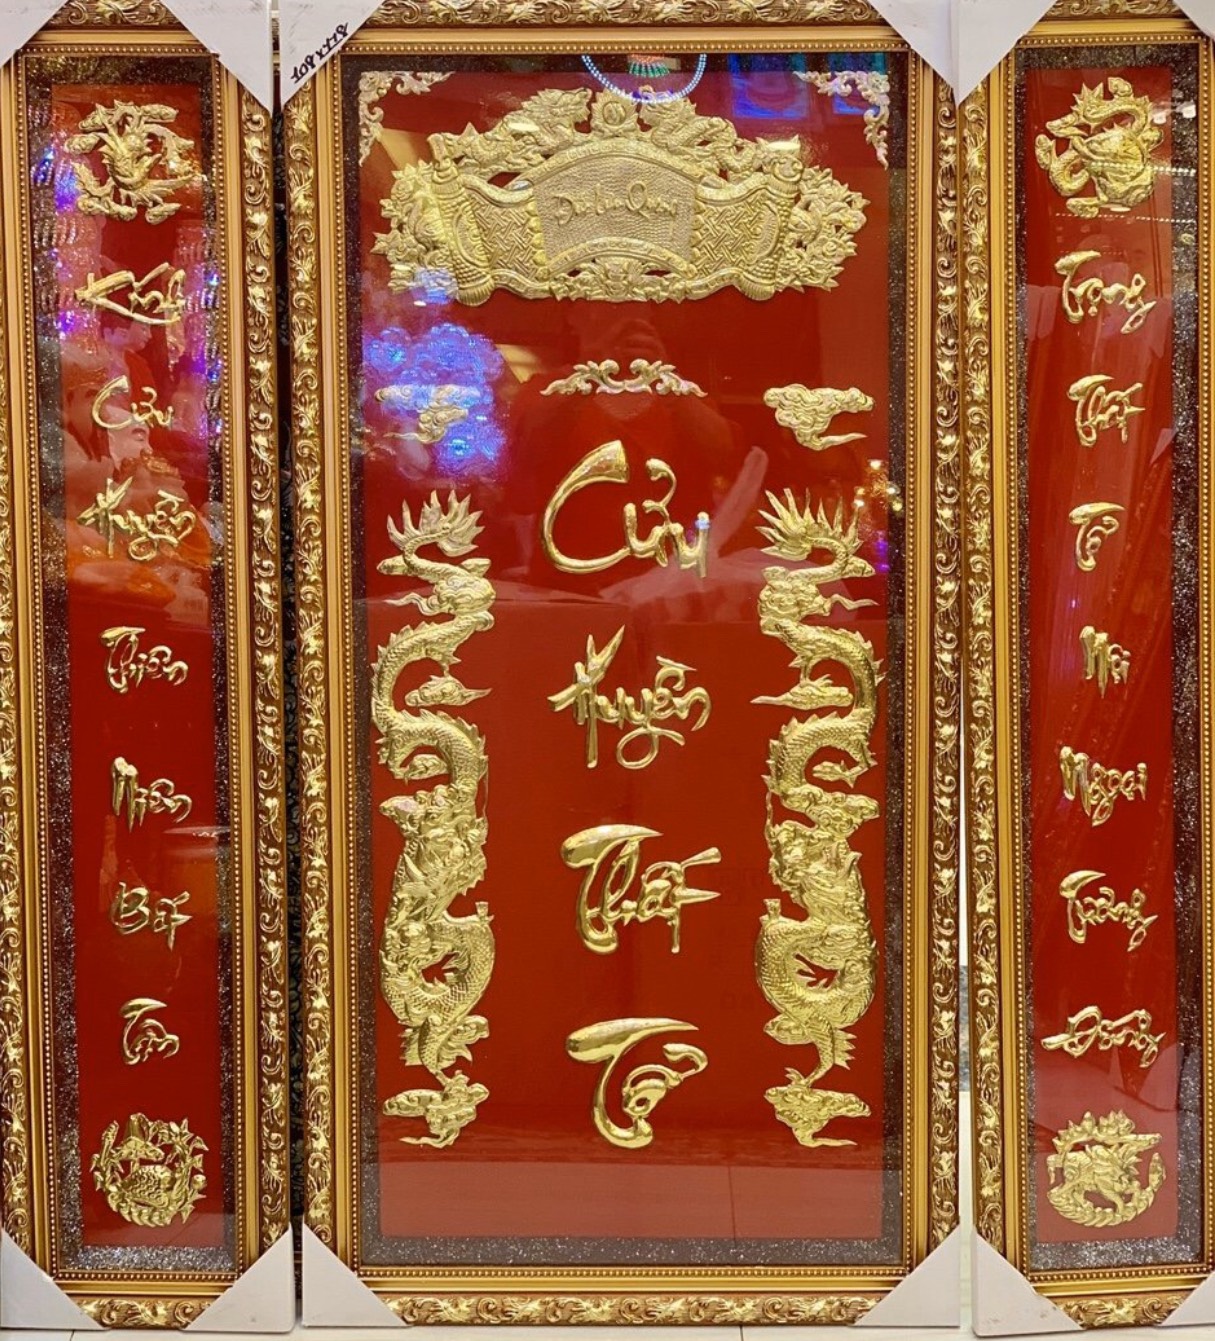 108x118
Đức Lưu Quang
Kính
Cửu
Huyền
Thiên
Niên
Bất
Tận
Cửu
Huyền
Thất
Tổ
Trọng
Thất
Tổ
Nội
Ngoại
Trường
Đông